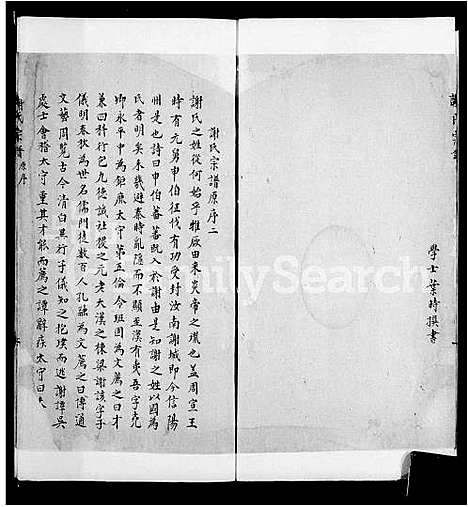 學士葉時撰書
謝氏宗譜原序二
謝氏之姓從何始乎雅啟由來炎帝之壤也盖周宣王
時有元舅申伯徃伐有功受封汝南謝城即今信陽
州是也詩曰申伯蕃蕃既入於謝由是知謝之姓以國為
氏者明矣末幾避秦時亂隱而不顯至漢有夷吾字尭
卿永平中為鉅鹿太守第五倫令班固為文薦之曰才
兼四科行包九德誠社稷之元老大漢之棟梁謝該字子
儀明春秋為世名儒門徒數百人孔融為文薦之曰博通
文藝周覽古今清白異行子儀知之抱璞而逃謝譚吳
處士會稽太守重其才能而薦之譚辭疾太守曰夫
謝氏宗譜 原序
FamilySearch